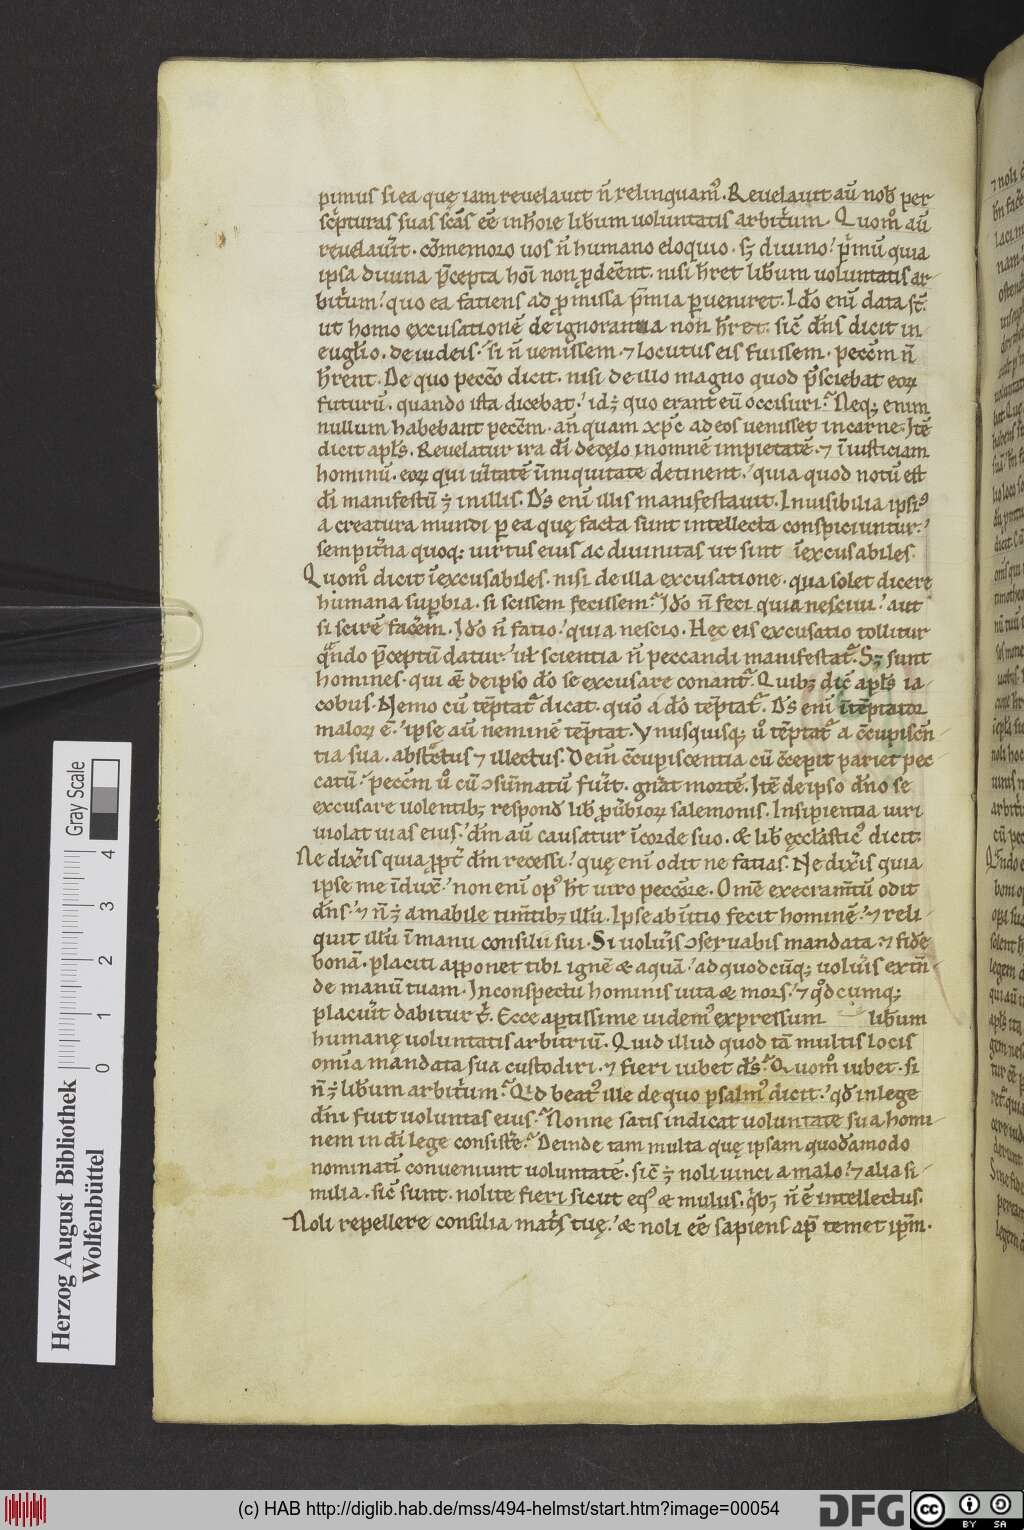 pimus si ea quę iam reuelauit n̄ relinquam᷒. Reuelauit au̅ nob̅ per
sc̅pturas suas sc̅as ee̅ in ho̅ie lib̅um uoluntatis arbit̅um. Quom̊ au̅
reuelau̅it. co̅memoro uos n̄ humano eloquio. sꝫ diuino. p̅mu̅ quia
ipsa diuina p̅cepta ho̅i non p̱dee̅nt. nisi h̅ret lib̅um uoluntatis ar-
bit̅um. quo ea fatiens ad ꝓmissa p̅mia ꝑueniret. Ido̅ eni̅ data st̅.
ut homo excusatione̅ de ignorantia non h̅ret. sic̅ dn̅s dicit in
eug̅lio. de iudeis. si n̄ uenissem. ⁊ locutus eis fuissem. pecc̅m n̄
h̅rent. De quo pecc̅o dicit. nisi de illo magno quod p̅sciebat eoꝝ
futuru̅. quando ista dicebat. id ÷ quo erant eu̅ occisuri. Neqꝫ enim
nullum habebant pecc̅m. an̅ quam xp̅c ad eos uenisset in carne. Ite̅
dicit apl̅s. Reuelatur ira di̅ de cęlo in omne̅ impietate̅. ⁊ i̅iusticiam
hominu̅. eoꝝ qui u̅itate̅ i̅niquitate detinent. quia quod notu̅ est
di̅ manifestu̅ ÷ in illis. Ds̅ eni̅ illis manifestauit. Inuisibilia ipsi᷒
a creatura mundi ꝑ ea quę facta sunt intellecta conspiciuntur.
sempit̅na quoqꝫ uirtus eius ac diuinitas ut sint i̅excusabiles.
Quom̊ dicit i̅excusabiles. nisi de illa excusatione. qua solet dicere
humana suꝑbia. si scissem fecissem. Ido̅ n̄ feci quia nesciui. aut
si scire̅ face̅m. Ido̅ n̄ fatio. quia nescio. Hęc eis excusatio tollitur
qn̅do p̅ceptu̅ datur. ul̅ scientia n̄ peccandi manifestat᷑. Sꝫ sunt
homines. qui & de ipso do̅ se excusare conant᷑. Quibꝫ dic̅ apl̅s ia-
cobus. Nemo cu̅ te̅ptat᷑ dicat. quo̅ a do̅ te̅ptat᷑. Ds̅ eni̅ i̅te̅ptator
maloꝝ e̅. ipse au̅ nemine̅ te̅ptat. Vnusquisqꝫ ů te̅ptat᷑ a c̅cupiscn̅-
tia sua. abst̅ctus ⁊ illectus. Dein̅ c̅cupiscentia cu̅ c̅cepit pariet pec-
catu̅. pecc̅m ů cu̅ ɔsu̅matu̅ fu̅it. gn̅at morte̅. Ite̅ de ipso dn̅o se
excusare uolentibꝫ respond̅ lib̅ ꝓu̅bioꝝ salemonis. Insipientia uiri
uiolat uias eius. dm̅ au̅ causatur i̅ corde suo. & lib̅ ęccl̅astic᷒ dicit.
Ne dix̅is quia ꝓpt̅ dm̅ recessi. quę eni̅ odit ne fatias. Ne dix̅is quia
ipse me i̅dux̅. non eni̅ op᷒ ht̅ uiro pecc̅ore. Om̅e execram̅tu̅ odit
dn̅s. ⁊ n̄ ÷ amabile tim̅tibꝫ illu̅. Ipse ab i̅itio fecit homine̅. ⁊ reli-
quit illu̅ i̅ manu consilii sui. Si uolu̅is ɔseruabis mandata ⁊ fide̅
bona̅. placiti apponet tibi igne̅ & aqua̅. ad quodcu̅qꝫ uolu̅is exte̅n-
de manu̅ tuam. In conspectu hominis uita & mors. ⁊ qd̊cumqꝫ
placu̅it dabitur e̅i. Ecce aꝑtissime uidem᷒ expressum lib̅um
humanę uoluntatis arbitriu̅. Quid illud quod ta̅ multis locis
omi̅a mandata sua custodiri. ⁊ fieri iubet ds̅. Quom̊ iubet. si
n̄ ÷ lib̅um arbit̅um. Qid beat᷒ ille de quo psalm᷒ dicit. qd̅ in lege
dn̅i fuit uoluntas eius. Nonne satis indicat uoluntate sua homi-
nem in di̅ lege consiste̅. Deinde tam multa quę ipsam quodamodo
nominati̅ conueniunt uoluntate̅. sic̅ ÷ noli uinci a malo. ⁊ alia si-
milia. sic̅ sunt. nolite fieri sicut eq᷒ & mulus. qibꝫ n̄ e̅ intellectus.
Noli repellere consilia mat̅s tuę. & noli ee̅ sapiens ap̅ temet ipm̅.
Herzog August Bibliothek
Wolfenbüttel
Gray Scale
0 1 2 3 4
(c) HAB http://diglib.hab.de/mss/494-helmst/start.htm?image=00054
DFG
cc BY SA